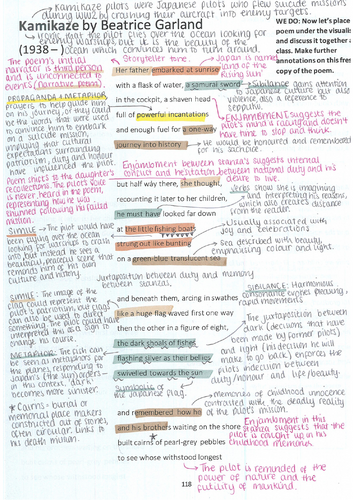 Kamikaze pilots were Japanese pilots who flew suicide missions
during WW2 by crashing their aircraft into enemy targets.
Kamikaze by Beatrice Garland
(1938 – )
Irony that the pilot flies over the ocean looking for
enemy warships but it is the beauty of the
ocean which convinces him to turn around.
WE DO: Now let's place
poem under the visualis
and discuss it together a
class. Make further
annotations on this fres
copy of the poem.
The poem's initial
narrator is third person
and is unconnected to
events (Narrative poem)
Storyteller tone.
Japan is named
'land of the
Rising Sun'
Her father embarked at sunrise
with a flask of water, a samurai sword
in the cockpit, a shaven head
full of powerful incantations
and enough fuel for a one-way
journey into history
Sibilance draws attention
to Japanese culture but also
violence, also a reference to
seppuku.
PROPAGANDA + METAPHOR
prayers is to help guide him
on his journey, or they could
be the words that were used
to convince him to embark
on a suicide mission,
implying that cultural
expectations surrounding
patriotism, duty and honour
have influenced the pilot
ENJAMBMENT SUGGESTS the
pilot's mind is racing and doesn't
have time to stop and think.
he would be honoured and remembered
for his sacrifice.
Enjambment between stanza's suggests internal
conflict and hesitation between national duty and his
desire to live.
Poem shifts to the daughter's
recollections. The pilot's voice
is never heard in the poem,
representing how he was
shunned following his failed
mission.
but half way there, she thought,
recounting it later to her children,
he must have looked far down
at the little fishing boats
strung out like bunting
on a green-blue translucent sea
Verbs show she is imagining
and interpreting his reasons,
which also creates distance
from the reader.
Usually associated with
joy and celebrations
Sea described with beauty,
emphasising colour and light.
SIMILE → The pilot would have
been flying over the ocean
looking for warships to crash
into but instead he sees a
beautiful, peaceful scene that
reminds him of his own
culture and history.
Juxtaposition between duty and memory
between stanzas.
SIBILANCE: Harmonious
consonance echoes pleasing,
fluid movements
SIMILE: The image of the
flag could represent the
pilot's patriotism, but flags
can also be used to direct
something. The pilot could have
interpreted this as a sign to
change his course.
and beneath them, arcing in swathes
like a huge flag waved first one way
then the other in a figure of eight,
the dark shoals of fishes
flashing silver as their bellies
swivelled towards the sun
The juxtaposition between
dark (decisions that have
been made by former pilots)
and light (his decision he will
make to go back) enforces the
pilot's indecision between
duty/honour and life/beauty.
METAPHOR: The fish can
be seen as metaphors for
the planes, responding to
Japan's (the sun) orders
in this context, 'dark'
becomes more sinister.
symbolic of
the Japanese flag.
* Cairns - burial or
memorial place makers
constructed out of stones,
often circular. Links to
his death mission.
Memories of childhood innocence
contrasted with the deadly reality
of the pilot's mission.
and remembered how he
and his brothers waiting on the shore
built cairns of pearl-grey pebbles
to see whose withstood longest
Enjambment in this
stanza suggests that the
pilot is caught up in his
childhood memories.
118
→ The pilot is reminded of the
power of nature and the
futility of mankind.